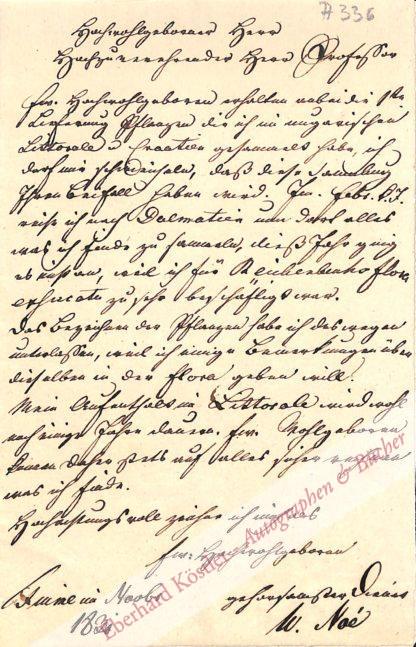 A 336
Hochwohlgeborner Herr
Hochzuverehrender Herr Professor
Ew. Hochwohlgeboren erhalten anbei die 1te
Lieferung Pflanzen die ich im ungarischen
Littorale u Croatien gesammelt habe, ich
darf mir schmeicheln, daß diese Sammlung
Ihren Beifall haben wird. Im Febr. k. J.
reise ich nach Dalmatien um dort alles
was ich finde zu sammeln, dieß Jahr ging
es nicht an, weil ich für Reichenbachs flora
exsiccata zu sehr beschäftigt war.
Das Bezeichnen der Pflanzen habe ich deswegen
unterlassen, weil ich einige Bemerkungen über
dieselben in der flora geben will.
Mein Aufenthalt im Littorale wird wohl
noch einige Jahre dauern. Ew. Wohlgeboren
können daher stets auf alles sicher rechnen
was ich finde.
Hochachtungsvoll zeichne ich mich als
Ew. Hochwohlgeboren
Fiume im Novbr gehorsamster Diener
183 W. Noé
Eberhard Köstler Autographen & Bücher